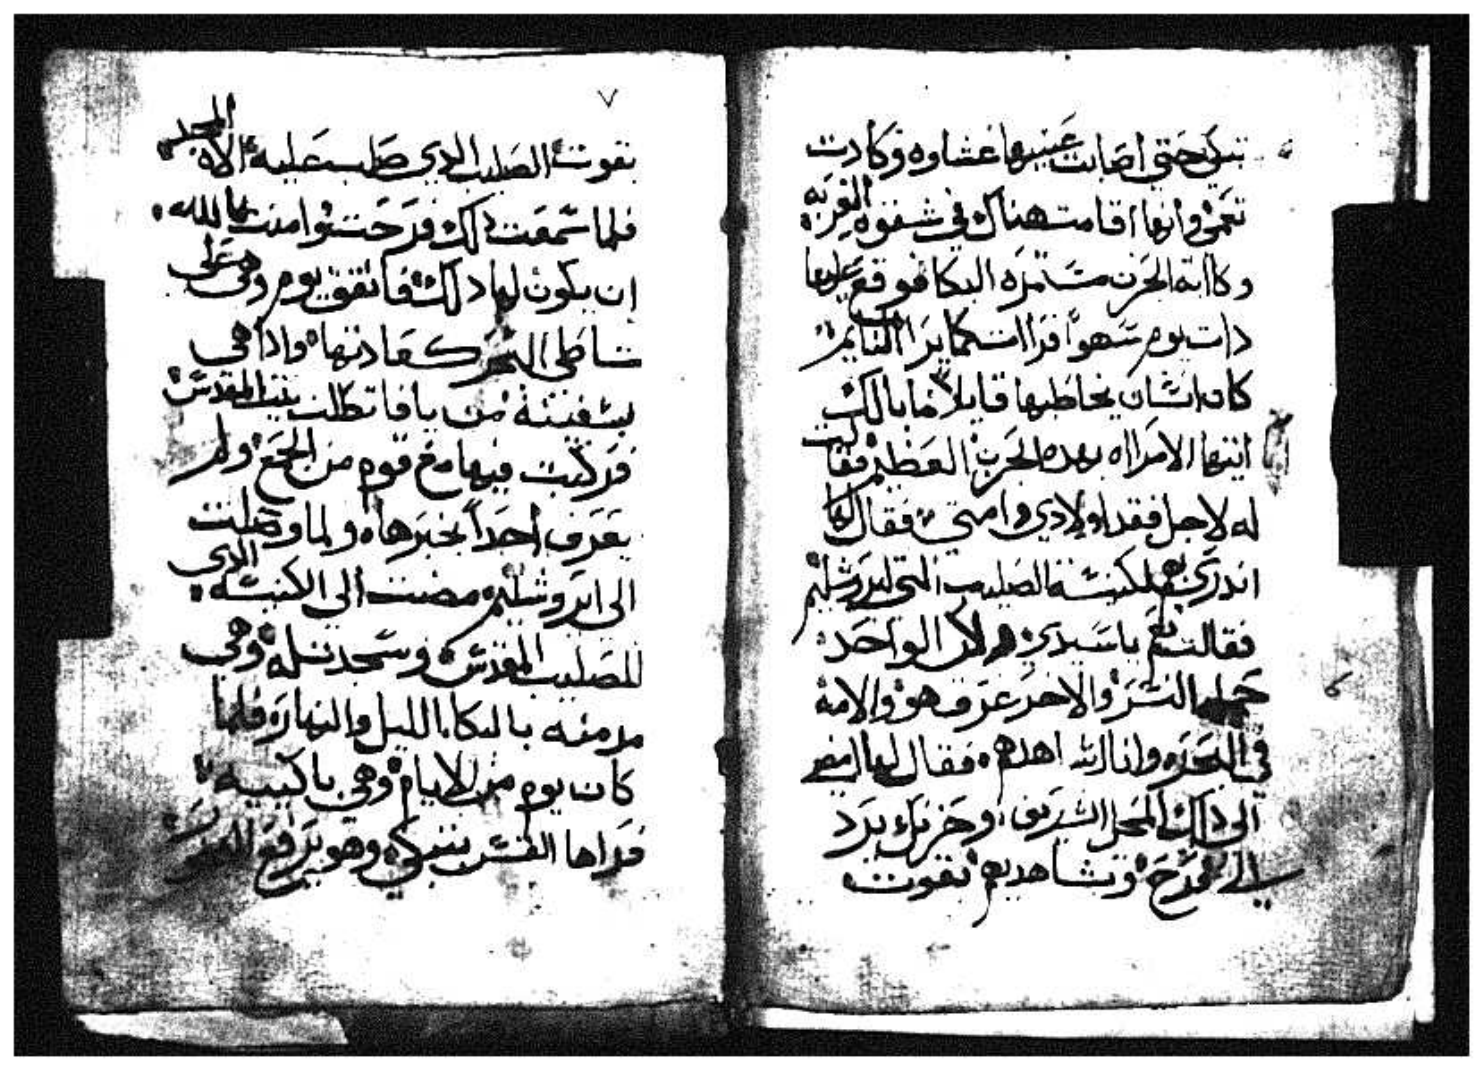 تبكي حتى اصابت عينيها غشاوه وكادت
تعمى وانها اقامت هناك في شقوه الغربه
وكاابة الحزن مستمره البكا فوقع عليها
دات يوم سهوا فراات كما يرا النايم
كان انسان يخاطبها قايلا ما بالك
ايتها الامرااه بهده الحزن العظيم فقالت
له لاجل فقد اولادي وامتي فقال لها
اتدري بكنيسة الصليب التي بايروشليم
فقالت نعم ياسيدي هم لان الواحد
حمله النسر والاخر غرق هو والامه
في البحره وانا الان اهدهم فقال لها امضي
الى داك المحل الشريف وحزنك يرد
الى فرح وتشاهديهم بقوت
٧
بقوت الصليب الدي صلب عليه الاه المجد
فلما سمعت دلك فرحت وامنت بالله
ان يكون لها دلك فاتفق يوم وهي على
شاطى البحر كعادتها وادا هي
بسفينة من يافا تطلب بيت المقدس
فركبت فيها مع قوم من الجمع ولم
يعرف احدا بخبرها ولما وصلت
الى ايروشليم مضت الى الكنيسه الدي
للصليب المقدس وسجدت له وهي
مدمنه بالبكا الليل والنهار فلما
كان يوم من الايام وهي باكييه
فراها القس تبكي وهو يرفع البخور